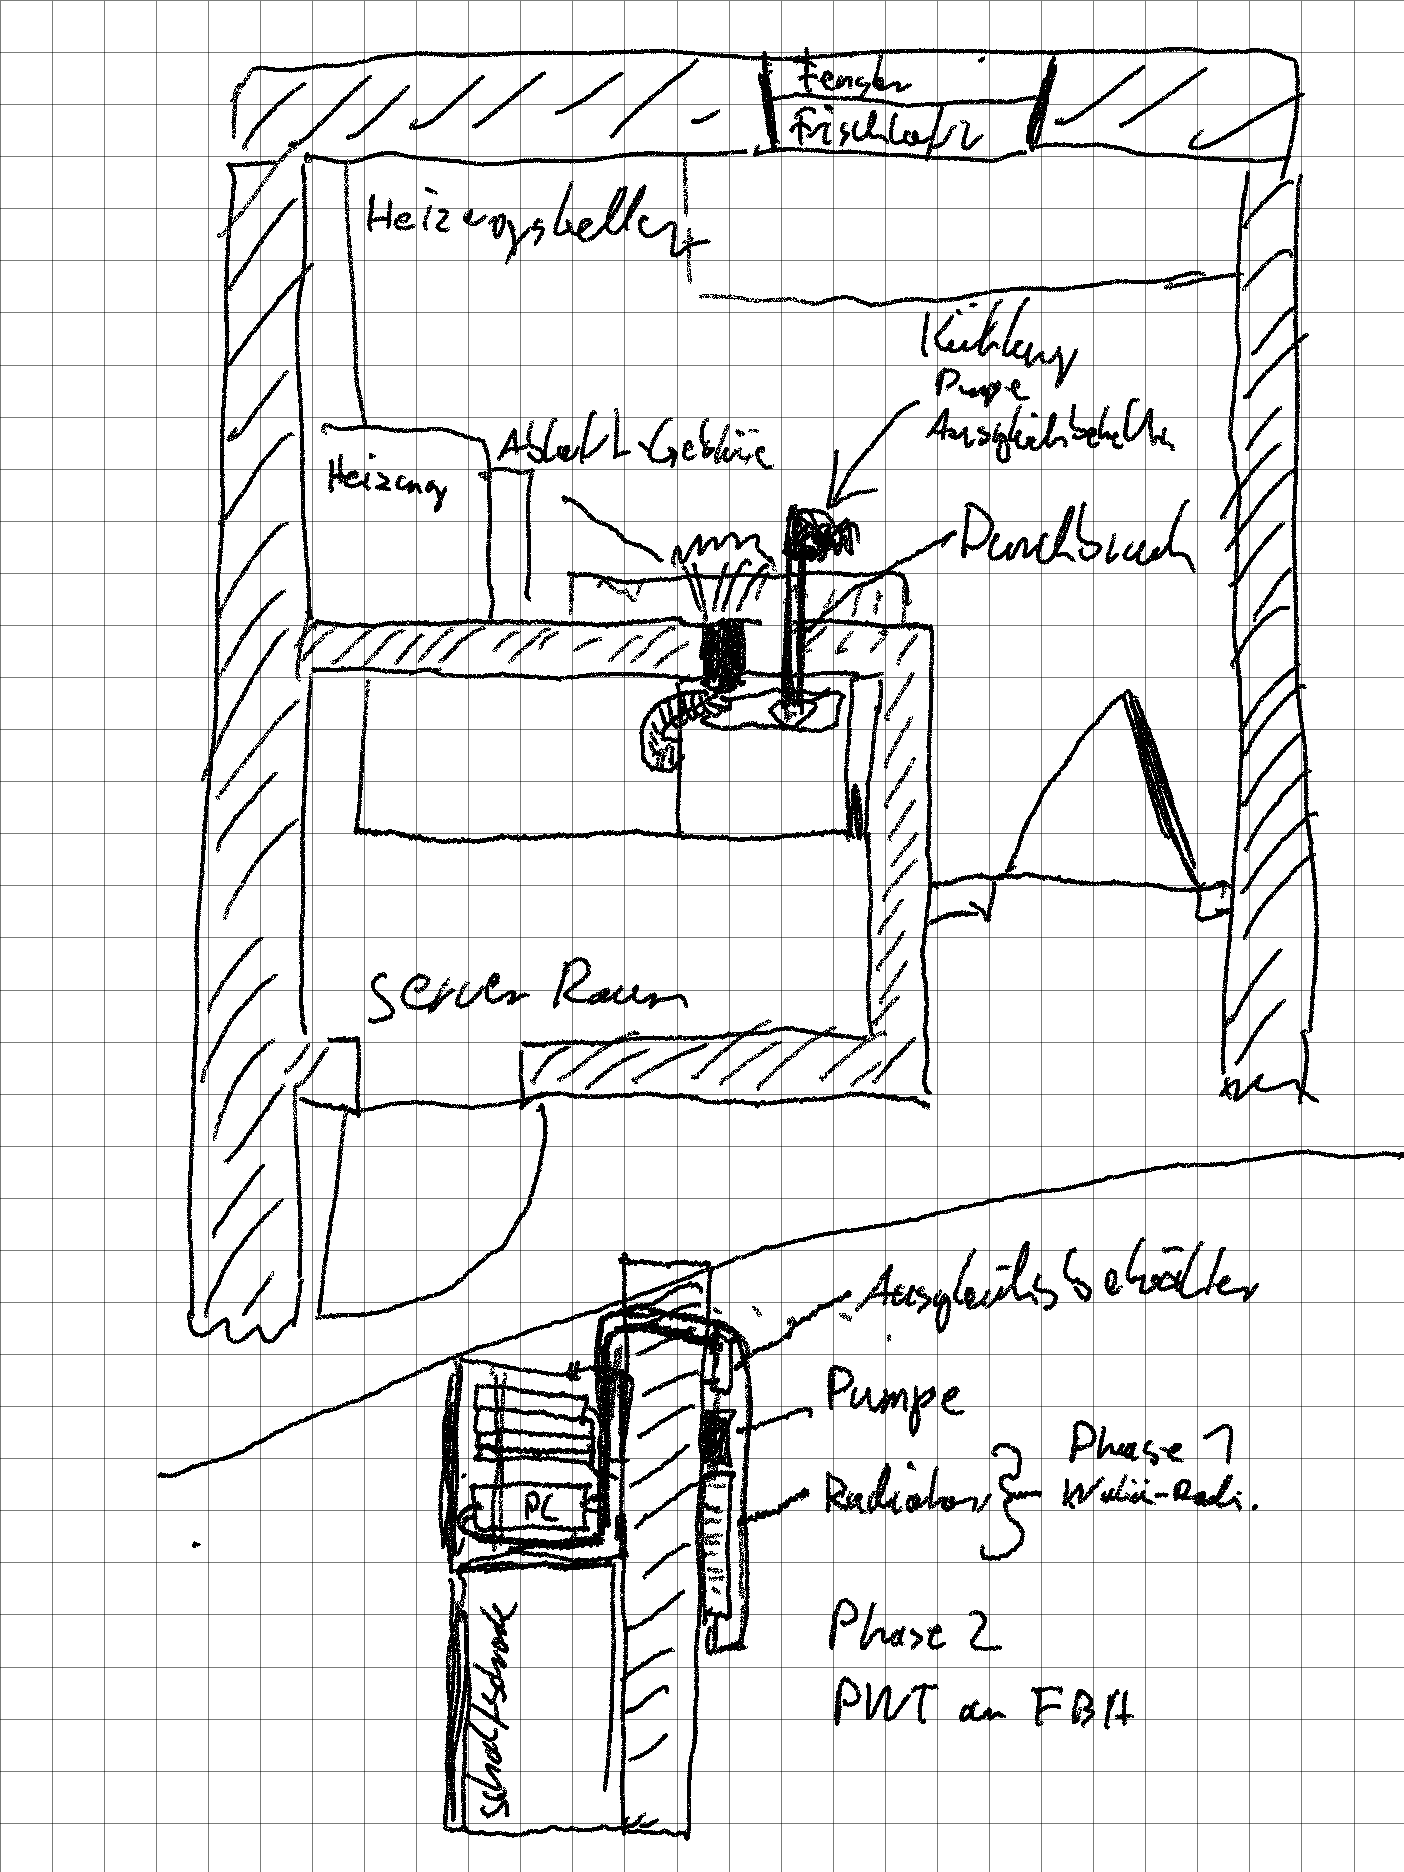 Fenster
Frischluft
Heizungskeller
Kühlung
Pumpe
Ausgleichsbehälter
Abluft-Gebläse
Heizung
Durchbruch
Server Raum
Ausgleichsbehälter
Pumpe
Radiator
Phase 1
WaKü-Radi.
PC
Phase 2
PWT an FBH